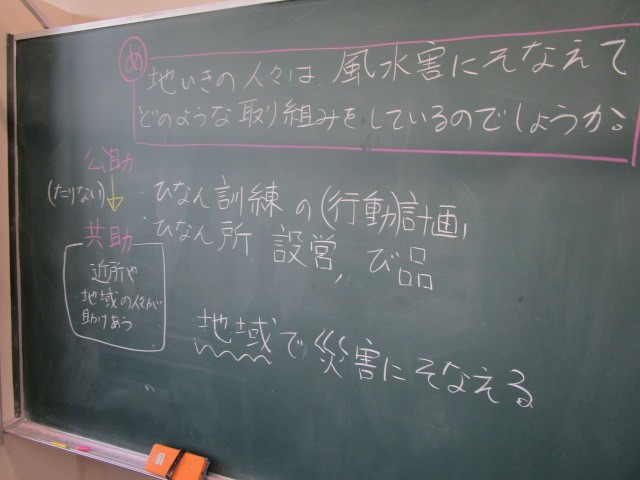 め 地いきの人々は、風水害にそなえて
どのような取り組みをしているのでしょうか。
公助
(たりない)
共助
近所や
地域の人々が
助けあう
・ひなん訓練の(行動)計画,
・ひなん所 設営, び品
地域で災害にそなえる。